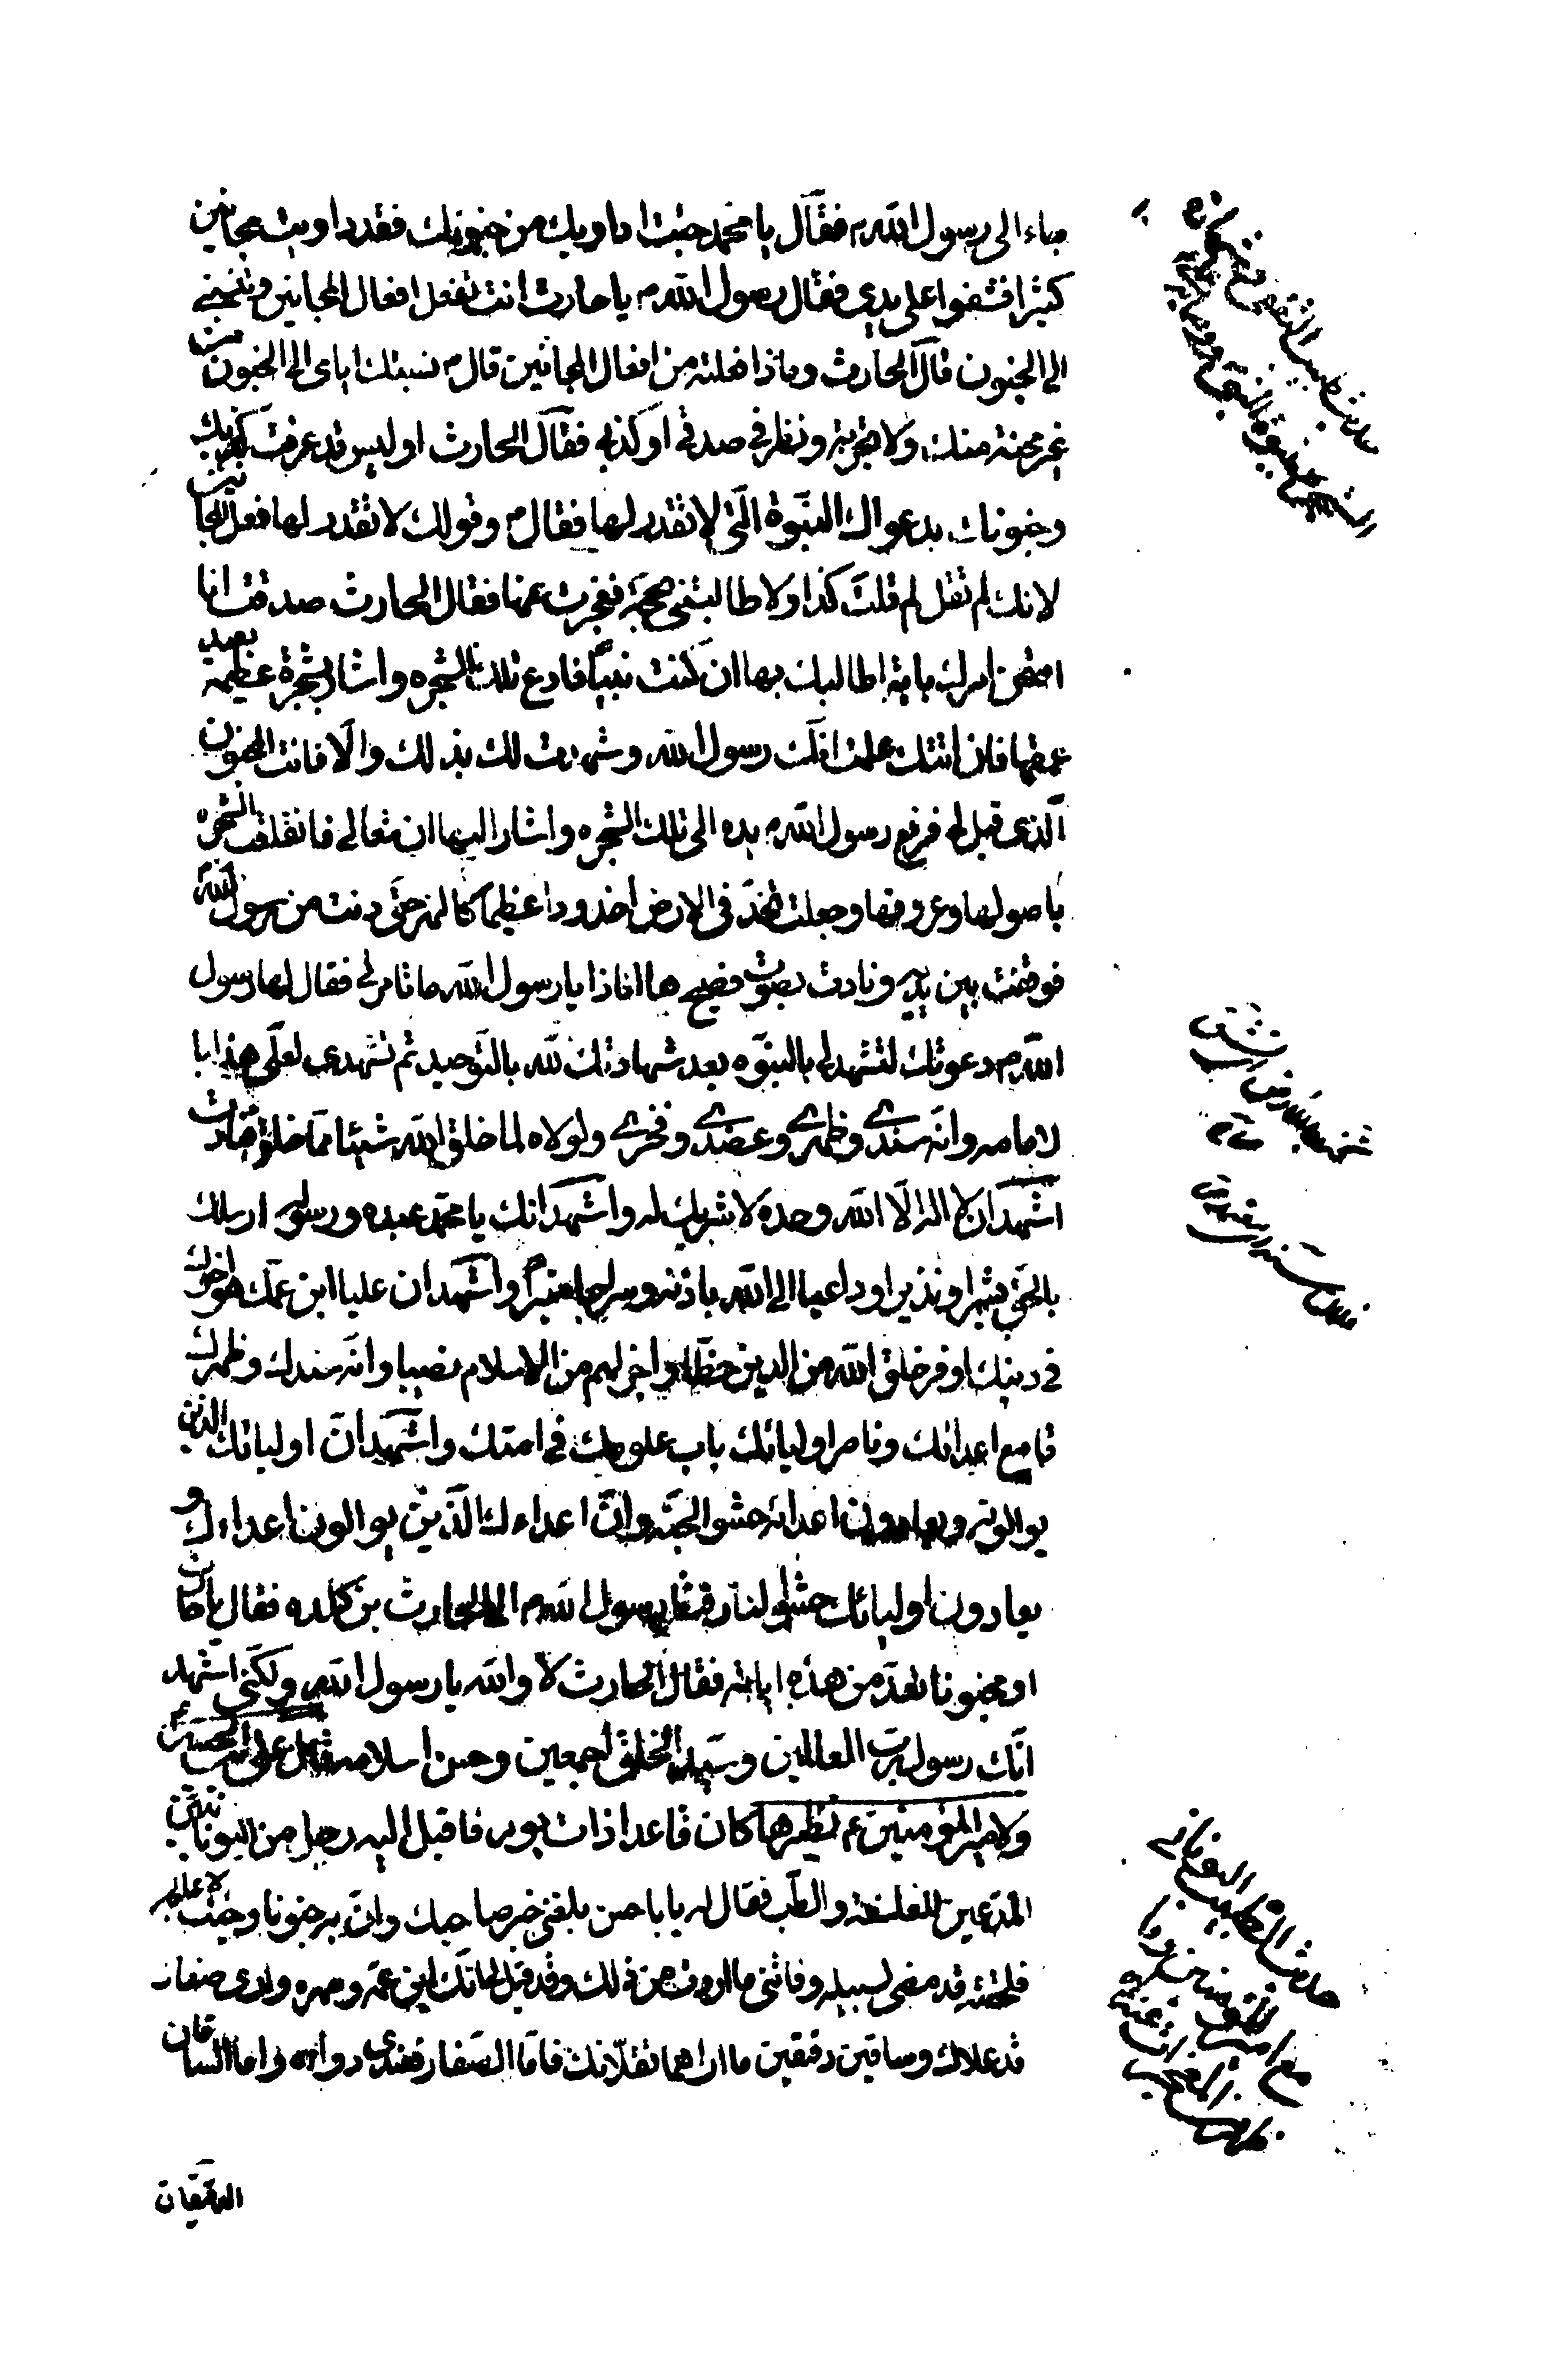 جاء الى رسول اللهم فقال يا محمد جئت اداويك من جنونك فقد داويت مجانين
كثيرا فشفوا على يدي فقال رسول اللهم يا حارث انت تفعل افعال المجانين وتنسبني
الى الجنون قال الحارث وماذا فعلته من افعال المجانين قال م نسبتك اياى الى الجنون من
غير محنة منك ولا تجربة ونظر في صدقي او كذبي فقال الحارث اوليس قد عرفت كذبك
وجنونك بدعواك النبوة التى لا تقدر لها فقال م وقولك لا تقدر لها فعل المجانين
لانك لم تقل لم قلت كذا ولا طالبتني بحجة فعجزت عنها فقال الحارث صدقت انا
امتحن امرك باية اطالبك بها ان كنت نبيا فادع تلك الشجره واشار بشجرة عظيمة بعيد
عمقها فان اتتك علمت انك رسول الله وشهدت لك بذلك والا فانت المجنون
الذى قيل لي فرفع رسول اللهم يده الى تلك الشجره واشار اليها ان تعالى فانقلعت الشجره
باصولها وعروقها وجعلت تخد فى الارض اخدودا عظيما كالنهر حتى دنت من رسول الله
فوقفت بين يديه ونادت بصوت فصيح ها انا ذا يا رسول الله ما تامرني فقال لها رسول
اللهم دعوتك لتشهد لي بالنبوه بعد شهادتك لله بالتوحيد ثم تشهدى لعلي هذا با
لامامه وانه سندي وظهري وعضدي وفخري ولولاه لما خلق الله شيئا مما خلق فنادت
اشهد ان لا اله الا الله وحده لا شريك له واشهد انك يا محمد عبده ورسوله ارسلك
بالحق بشيرا ونذيرا وداعيا الى الله باذنه وسراجا منيرا واشهد ان عليا ابن عمك هو اخوك
في دينك اوفر خلق الله من الدين حظا واجزلهم من الاسلام نصيبا وانه سندك وظهرك
قامع اعدائك وناصر اوليائك باب علومك في امتك واشهد ان اوليائك الذين
يوالونه ويعادون اعدائه حشو الجنه وان اعداءك الذين يوالون اعداءك و
يعادون اوليائك حشو النار فنظر رسول اللهم الى الحارث بن كلده فقال يا حارث
او مجنونا تعد من هذه اياته فقال الحارث لا والله يا رسول الله ولكني اشهد
انك رسول رب العالمين وسيد الخلق اجمعين وحسن اسلامه فقال على بن الحسين ع
ولامير المؤمنين ع نظيرها كان قاعدا ذات يوم فاقبل اليه رجل من اليونانين
المدعين للفلسفه والطب فقال له يا با حسن بلغني خبر صاحبك وان به جنونا وجئت لاعالجه
فلحقته قد مضى لسبيله وفاتنى ما اردت من ذلك وقد قيل لى انك ابن عمه وصهره وارى صفار
قد علاك وساقين دقيقين ما اراهما تقلانك فاما الصفار فعندي دواؤه واما الساقان
الدقيقان